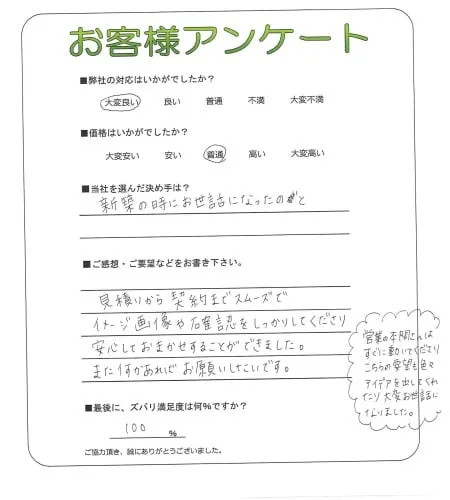 お客様アンケート
■弊社の対応はいかがでしたか？
大変良い 良い 普通 不満 大変不満
■価格はいかがでしたか？
大変安い 安い 普通 高い 大変高い
■当社を選んだ決め手は？
新築の時にお世話になったのと
■ご感想・ご要望などをお書き下さい。
見積りから契約までスムーズで
イメージ画像や確認をしっかりしてくださり
安心しておまかせすることができました。
また何かあればお願いしたいです。
営業の さんは
すぐに動いてくださり
こちらの要望も色々
アイデアを出してくれ
たり大変お世話に
なりました。
■最後に、ズバリ満足度は何%ですか？
100 %
ご協力頂き、誠にありがとうございました。